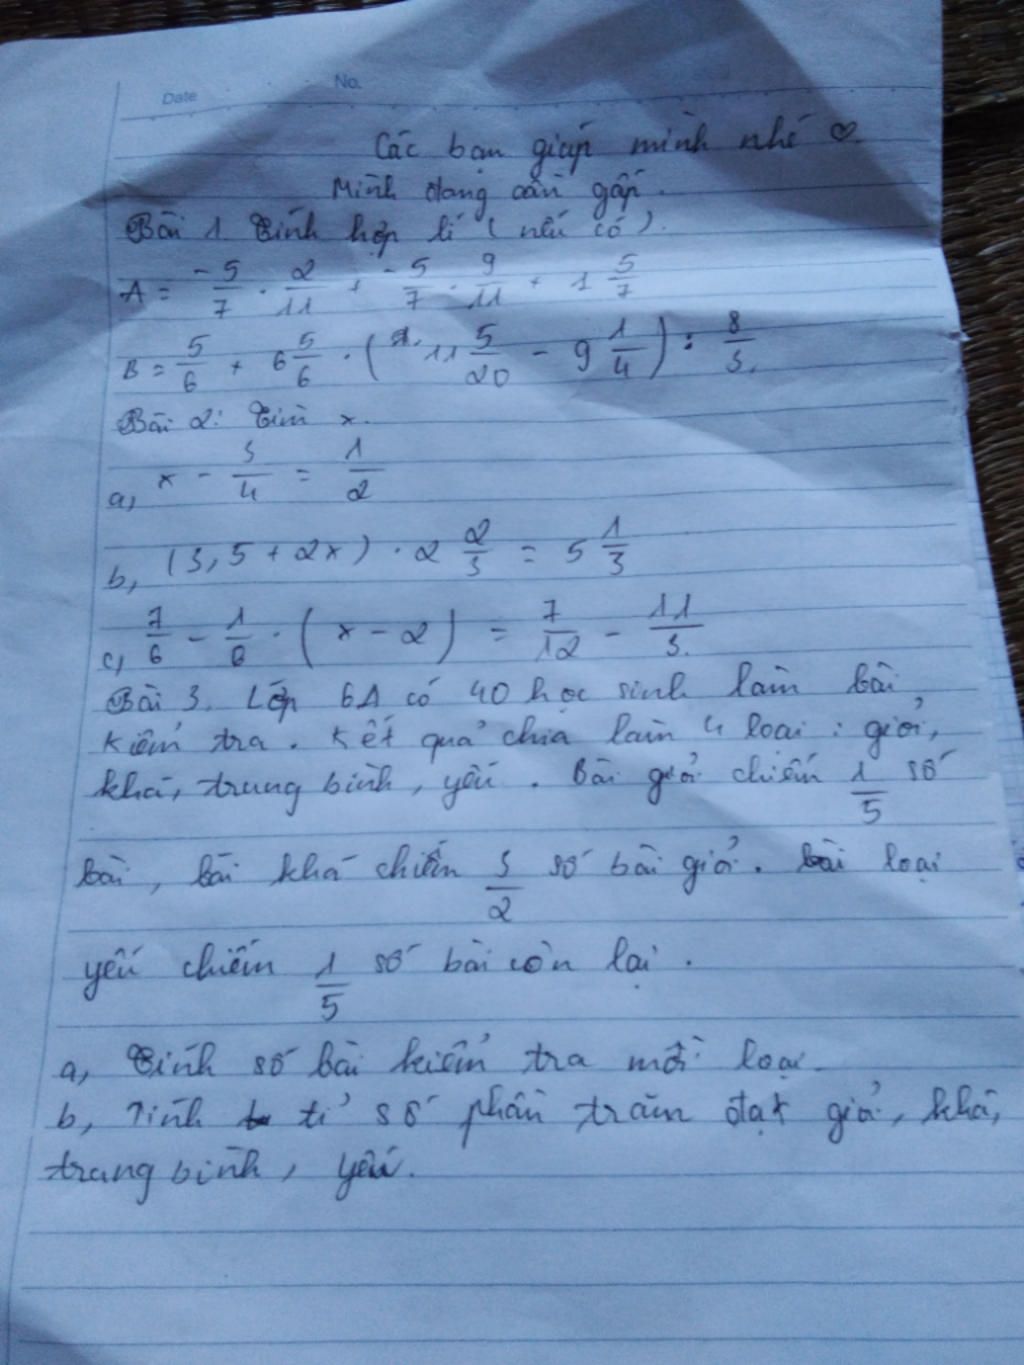 Date No.
Các bạn giúp mình nhé ♡.
Mình đang cần gấp.
Bài 1 Tính hợp lí (nếu có).
A = -5/7 . 2/11 + -5/7 . 9/11 + 1 5/7
B = 5/6 + 6 5/6 . (11 5/20 - 9 1/4) : 8/3.
Bài 2: Tìm x.
a, x - 3/4 = 1/2
b, (3,5 + 2x) . 2 2/3 = 5 1/3
c, 7/6 - 1/6 . (x - 2) = 7/12 - 11/3.
Bài 3. Lớp 6A có 40 học sinh làm bài
kiểm tra. Kết quả chia làm 4 loại: giỏi,
khá, trung bình, yếu. Bài giỏi chiếm 1/5 số
bài, bài khá chiếm 3/2 số bài giỏi. bài loại
yếu chiếm 1/5 số bài còn lại.
a, Tính số bài kiểm tra mỗi loại.
b, Tính tỉ số phần trăm đạt giỏi, khá,
trung bình, yếu.